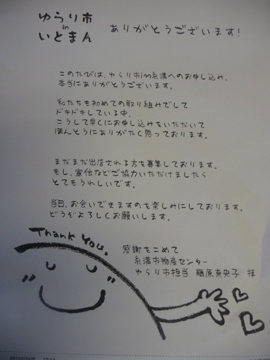 ゆらり市
in
いとまん
ありがとうございます!
このたびは、ゆらり市in糸満へのお申し込み、
本当にありがとうございます。
私たちも初めての取り組みでして
ドキドキしている中、
こうして早くにお申し込みをいただいて
ほんとうにありがたく思っております。
まだまだ出店される方も募集しております。
もし、宣伝などご協力いただけましたら
とてもうれしいです。
当日、お会いできますのを楽しみにしております。
どうぞよろしくお願いします。
Thank You,
感謝をこめて
糸満市物産センター
ゆらり市担当